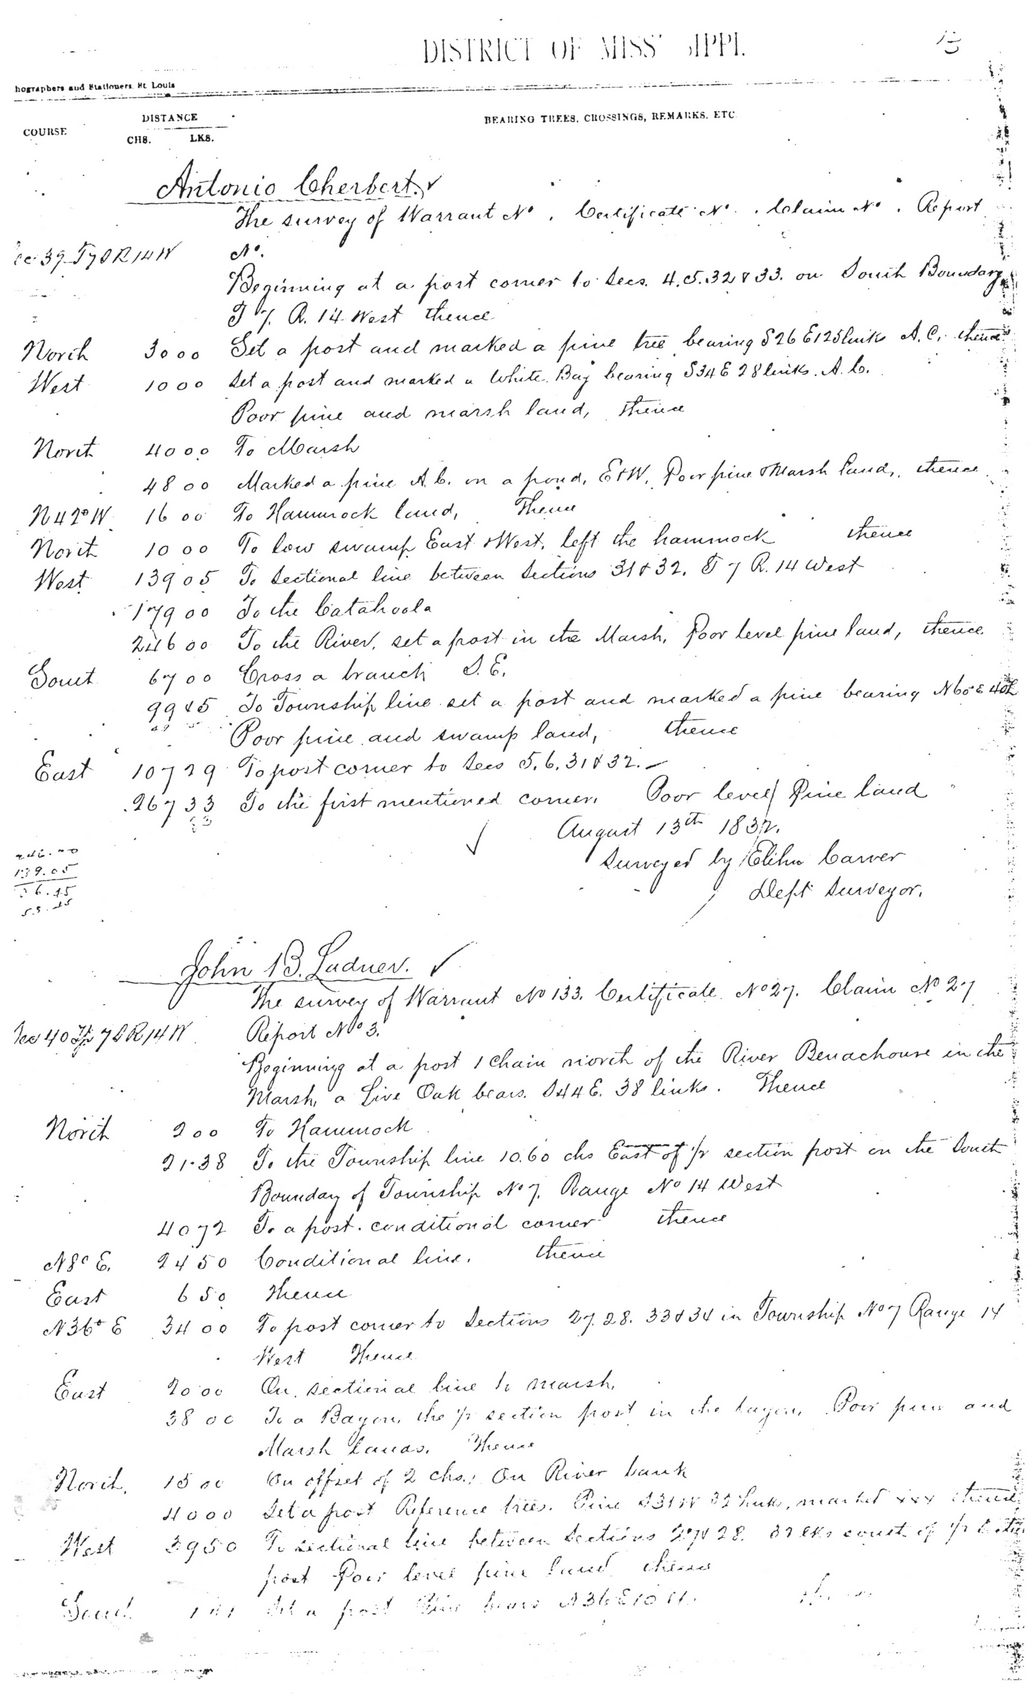 DISTRICT OF MISS IPPI.
13
hographers and Stationers, St. Louis
COURSE
DISTANCE
CHS. LKS.
BEARING TREES, CROSSINGS, REMARKS, ETC.
Antonio Cherbert. ✓
The survey of Warrant No . Certificate No . Claim No . Report
Sec 39 T7S R14W No.
Beginning at a post corner to Secs. 4.5.32 & 33. on South Boundary
T 7. R. 14 West thence
North 3000 Set a post and marked a pine tree bearing S26E 125 links A.C. thence
West 1000 Set a post and marked a White Bay bearing S34E 28 links. A.C.
Poor pine and marsh land, thence
North 4000 To Marsh
4800 Marked a pine A.C. on a pond, E&W. Poor pine & Marsh Land, thence
N42°W. 1600 To Hammock land, Thence
North 1000 To low swamp East & West, left the hammock thence
West 13905 To Sectional line between Sections 31 & 32. T 7 R. 14 West
17900 To the Catahoola
24600 To the River, set a post in the Marsh, Poor level pine land, thence
South 6700 Cross a branch S.E.
9945 To Township line set a post and marked a pine bearing N60E
Poor pine and swamp land, thence
East 10729 To post corner to Secs 5.6.31 & 32.
26733 To the first mentioned corner. Poor level Pine land
August 13th 1832.
Surveyed by Elihu Carver
Dept Surveyor.
246.00
139.05
John B. Ladner. ✓
The survey of Warrant No 133. Certificate No 27. Claim No 27
Sec 40 Tp 7S R14W Report No 3.
Beginning at a post 1 Chain north of the River Benachouse in the
Marsh, a Live Oak bears S44E. 38 links. Thence
North 200 To Hammock
21.38 To the Township line 10.60 chs East of 1/2 section post on the South
Bounday of Township No 7. Range No 14 West
4072 To a post. conditional corner thence
N8°E. 2450 Conditional line. thence
East 650 Thence
N36°E 3400 To post corner to Sections 27.28.33 & 34 in Township No 7 Range 14
West Thence
East 2000 On sectional line to marsh,
3800 To a Bayou, the 1/2 section post in the bayou. Poor pine and
Marsh Lands. Thence
North. 1500 On offset of 2 chs. On River bank
4000 Set a post Reference trees. Pine S31W 32 links, marked xxx thence
West 3950 To sectional line between Sections 27 & 28. 32 lks south of 1/2 section
post Poor level pine land thence
South Set a post Pine bears N36E